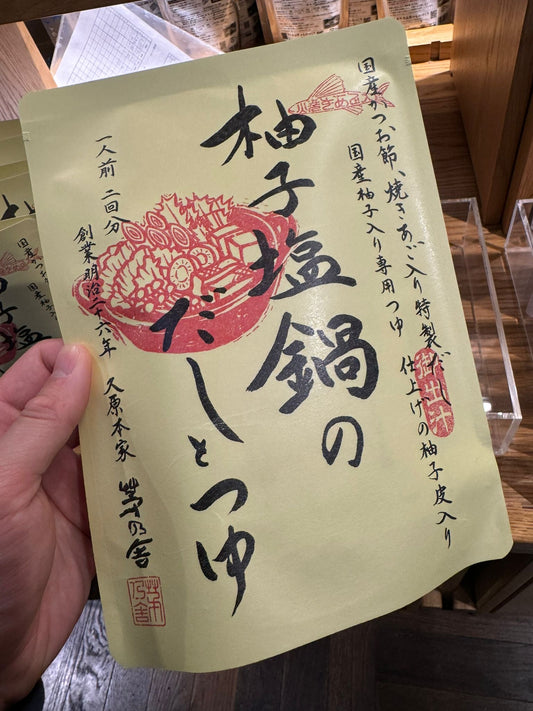 国産かつお節、焼きあご入り特製だし
国産柚子入り専用つゆ 仕上げの柚子皮入り
御出汁
柚子塩鍋の
だしとつゆ
一人前 二回分
創業明治二十六年 久原本家 茅乃舎
茅乃舎
国産かつお
国産柚子
柚子塩